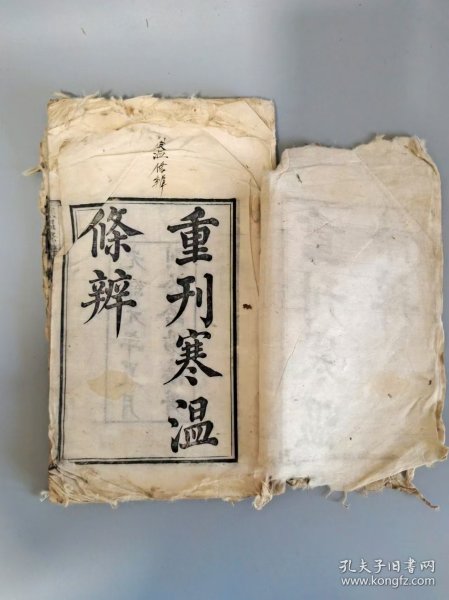 重刊寒温
條辨
寒温條辨
孔夫子旧书网
www.kongfz.com